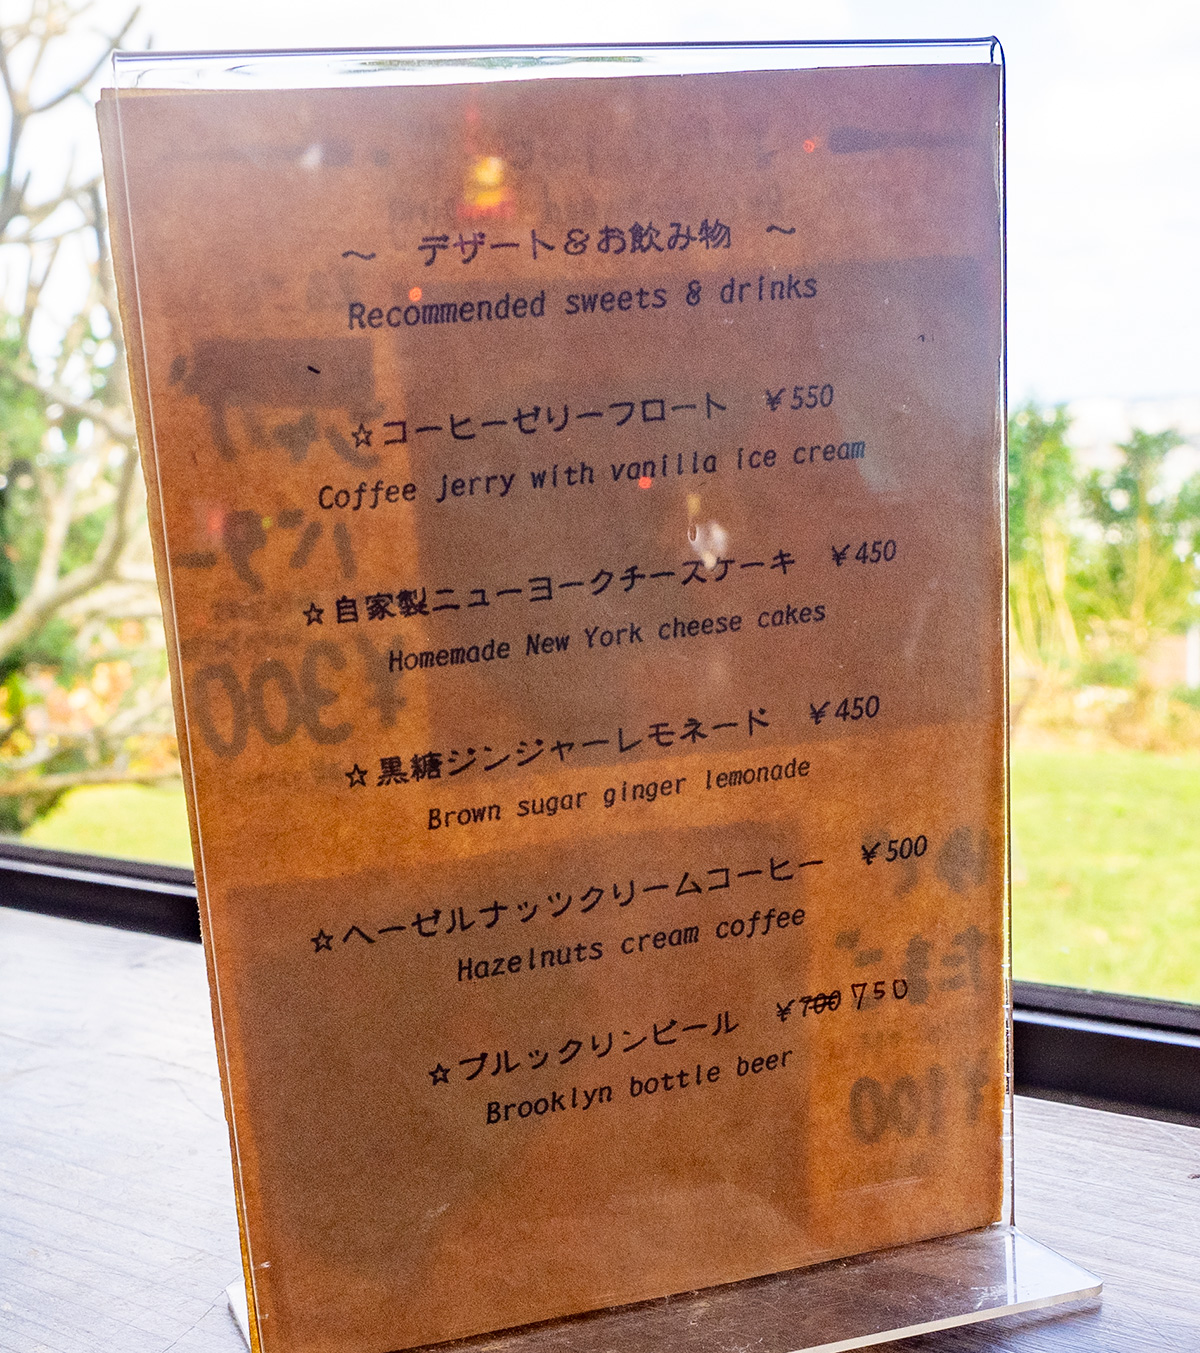 ～ デザート＆お飲み物 ～
Recommended sweets & drinks
☆コーヒーゼリーフロート ￥550
Coffee jerry with vanilla ice cream
☆自家製ニューヨークチーズケーキ ￥450
Homemade New York cheese cakes
☆黒糖ジンジャーレモネード ￥450
Brown sugar ginger lemonade
☆ヘーゼルナッツクリームコーヒー ￥500
Hazelnuts cream coffee
☆ブルックリンビール ￥700 750
Brooklyn bottle beer
￥300
￥100